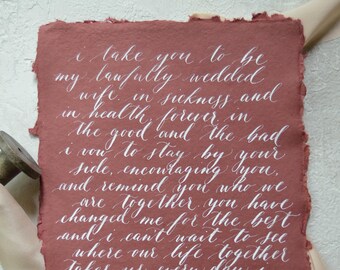 i take you to be
my lawfully wedded
wife in sickness and
in health forever in
the good and the bad
i vow to stay by your
side, encouraging you,
and remind you who we
are together you have
changed me for the best
and i can't wait to see
where our life together
takes us every day